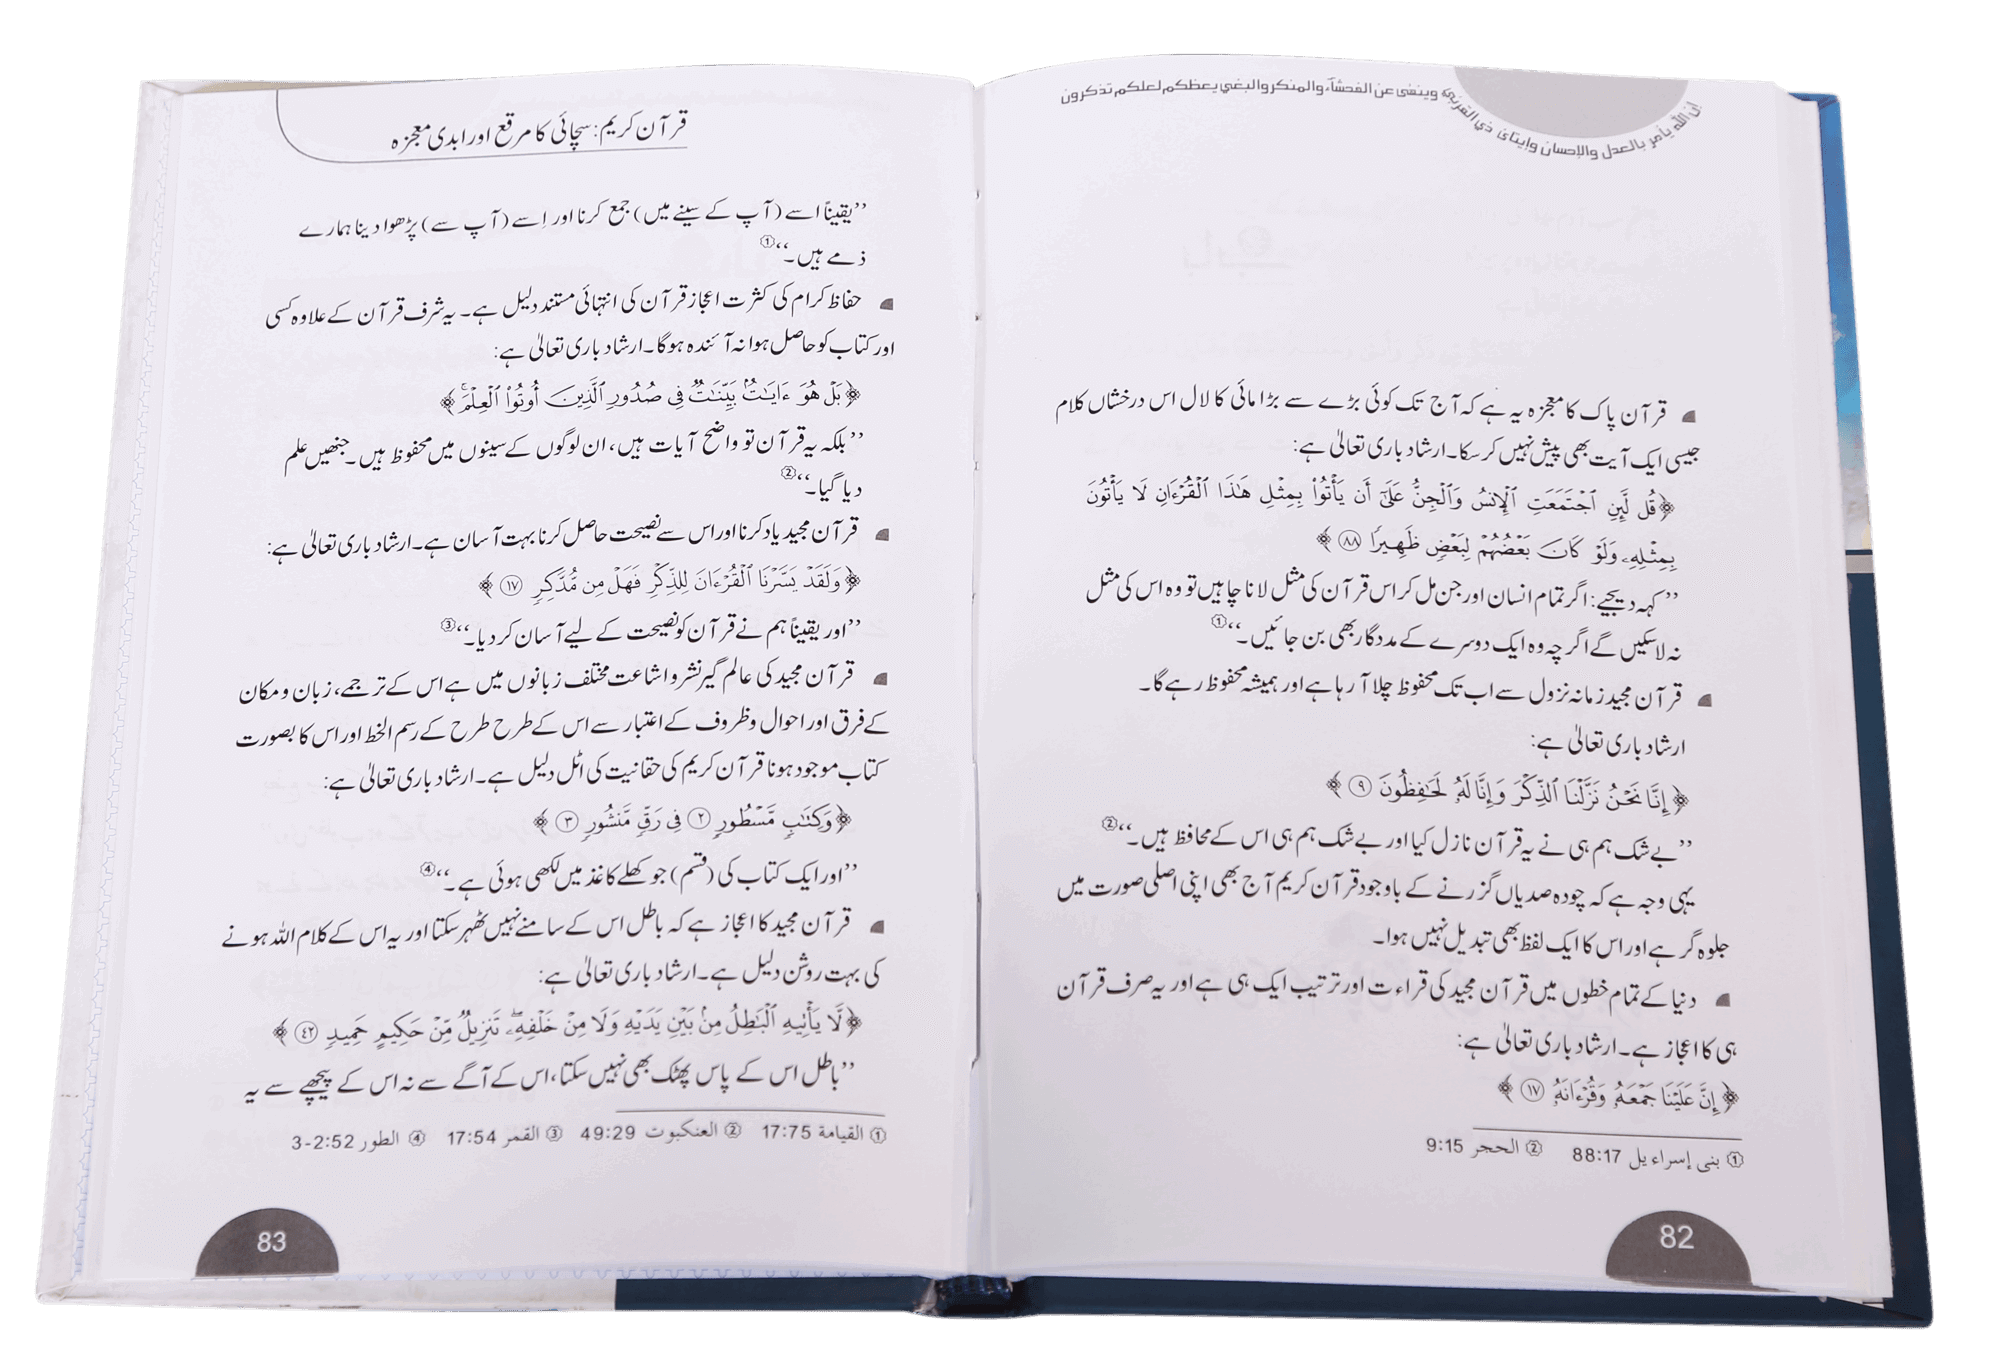 إن الله يأمر بالعدل والإحسان وإيتائ ذي القربى وينهى عن الفحشاء والمنكر والبغي يعظكم لعلكم تذكرون
قرآن پاک کا معجزہ یہ ہے کہ آج تک کوئی بڑے سے بڑا مائی کا لال اس درخشاں کلام
جیسی ایک آیت بھی پیش نہیں کر سکا۔ ارشاد باری تعالیٰ ہے:
﴿قُل لَّئِنِ ٱجْتَمَعَتِ ٱلْإِنسُ وَٱلْجِنُّ عَلَىٰٓ أَن يَأْتُوا۟ بِمِثْلِ هَـٰذَا ٱلْقُرْءَانِ لَا يَأْتُونَ
بِمِثْلِهِۦ وَلَوْ كَانَ بَعْضُهُمْ لِبَعْضٍ ظَهِيرًا ٨٨﴾
’’کہہ دیجیے: اگر تمام انسان اور جن مل کر اس قرآن کی مثل لانا چاہیں تو وہ اس کی مثل
نہ لا سکیں گے اگرچہ وہ ایک دوسرے کے مددگار بھی بن جائیں۔‘‘①
قرآن مجید زمانہ نزول سے اب تک محفوظ چلا آ رہا ہے اور ہمیشہ محفوظ رہے گا۔
ارشاد باری تعالیٰ ہے:
﴿إِنَّا نَحْنُ نَزَّلْنَا ٱلذِّكْرَ وَإِنَّا لَهُۥ لَحَـٰفِظُونَ ٩﴾
’’بے شک ہم ہی نے یہ قرآن نازل کیا اور بے شک ہم ہی اس کے محافظ ہیں۔‘‘②
یہی وجہ ہے کہ چودہ صدیاں گزرنے کے باوجود قرآن کریم آج بھی اپنی اصلی صورت میں
جلوہ گر ہے اور اس کا ایک لفظ بھی تبدیل نہیں ہوا۔
دنیا کے تمام خطوں میں قرآن مجید کی قراءت اور ترتیب ایک ہی ہے اور یہ صرف قرآن
ہی کا اعجاز ہے۔ ارشاد باری تعالیٰ ہے:
﴿إِنَّ عَلَيْنَا جَمْعَهُۥ وَقُرْءَانَهُۥ ١٧﴾
① بنی إسراءیل 88:17 ② الحجر 9:15
82
قرآن کریم: سچائی کا مرقع اور ابدی معجزہ
’’یقیناً اسے (آپ کے سینے میں) جمع کرنا اور اِسے (آپ سے) پڑھوا دینا ہمارے
ذمے ہیں۔‘‘①
حفاظ کرام کی کثرت اعجاز قرآن کی انتہائی مستند دلیل ہے۔ یہ شرف قرآن کے علاوہ کسی
اور کتاب کو حاصل ہوا نہ آئندہ ہوگا۔ ارشاد باری تعالیٰ ہے:
﴿بَلْ هُوَ ءَايَـٰتٌۢ بَيِّنَـٰتٌ فِى صُدُورِ ٱلَّذِينَ أُوتُوا۟ ٱلْعِلْمَ ۚ﴾
’’بلکہ یہ قرآن تو واضح آیات ہیں، ان لوگوں کے سینوں میں محفوظ ہیں۔ جنھیں علم
دیا گیا۔‘‘②
قرآن مجید یاد کرنا اور اس سے نصیحت حاصل کرنا بہت آسان ہے۔ ارشاد باری تعالیٰ ہے:
﴿وَلَقَدْ يَسَّرْنَا ٱلْقُرْءَانَ لِلذِّكْرِ فَهَلْ مِن مُّدَّكِرٍ ١٧﴾
’’اور یقیناً ہم نے قرآن کو نصیحت کے لیے آسان کر دیا۔‘‘③
قرآن مجید کی عالم گیر نشر و اشاعت مختلف زبانوں میں ہے اس کے ترجمے، زبان و مکان
کے فرق اور احوال و ظروف کے اعتبار سے اس کے طرح طرح کے رسم الخط اور اس کا بصورت
کتاب موجود ہونا قرآن کریم کی حقانیت کی اٹل دلیل ہے۔ ارشاد باری تعالیٰ ہے:
﴿وَكِتَـٰبٍ مَّسْطُورٍ ٢ فِى رَقٍّ مَّنشُورٍ ٣﴾
’’اور ایک کتاب کی (قسم) جو کھلے کاغذ میں لکھی ہوئی ہے۔‘‘④
قرآن مجید کا اعجاز ہے کہ باطل اس کے سامنے نہیں ٹھہر سکتا اور یہ اس کے کلام اللہ ہونے
کی بہت روشن دلیل ہے۔ ارشاد باری تعالیٰ ہے:
﴿لَّا يَأْتِيهِ ٱلْبَـٰطِلُ مِنۢ بَيْنِ يَدَيْهِ وَلَا مِنْ خَلْفِهِۦ ۖ تَنزِيلٌ مِّنْ حَكِيمٍ حَمِيدٍ ٤٢﴾
’’باطل اس کے پاس پھٹک بھی نہیں سکتا، اس کے آگے سے نہ اس کے پیچھے سے یہ
① القیامة 17:75 ② العنکبوت 49:29 ③ القمر 17:54 ④ الطور 3-2:52
83